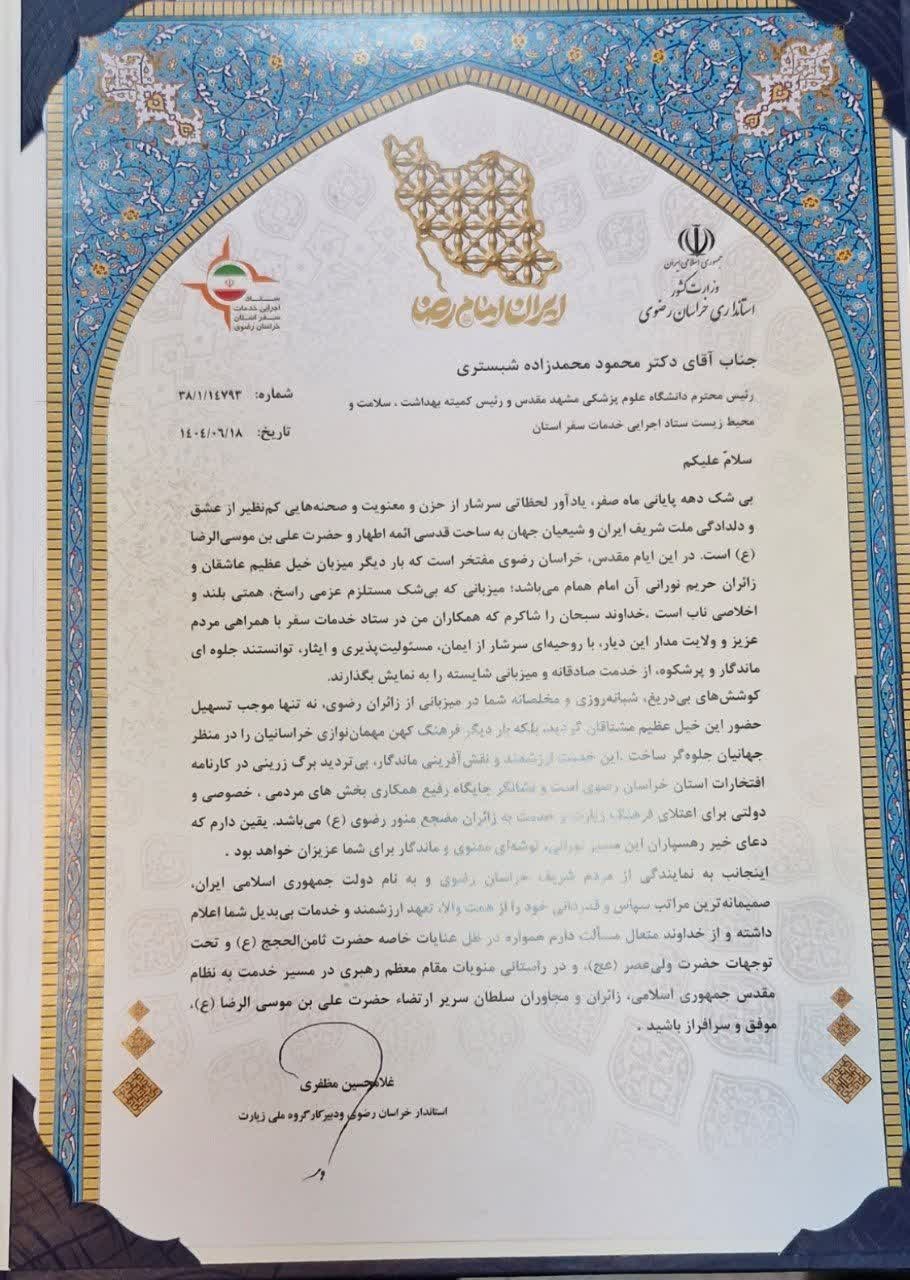 جمهوری اسلامی ایران
وزارت کشور
استانداری خراسان رضوی
ایران امام رضا
ستاد
اجرایی خدمات
سفر استان
خراسان رضوی
جناب آقای دکتر محمود محمدزاده شبستری
رئیس محترم دانشگاه علوم پزشکی مشهد مقدس و رئیس کمیته بهداشت ، سلامت و
محیط زیست ستاد اجرایی خدمات سفر استان
شماره: ۳۸/۱/۱۴۷۹۳
تاریخ: ۱۴۰۴/۰۶/۱۸
سلامٌ علیکم
بی شک دهه پایانی ماه صفر، یادآور لحظاتی سرشار از حزن و معنویت و صحنه‌هایی کم‌نظیر از عشق
و دلدادگی ملت شریف ایران و شیعیان جهان به ساحت قدسی ائمه اطهار و حضرت علی بن موسی‌الرضا
(ع) است. در این ایام مقدس، خراسان رضوی مفتخر است که بار دیگر میزبان خیل عظیم عاشقان و
زائران حریم نورانی آن امام همام می‌باشد؛ میزبانی که بی‌شک مستلزم عزمی راسخ، همتی بلند و
اخلاصی ناب است .خداوند سبحان را شاکرم که همکاران من در ستاد خدمات سفر با همراهی مردم
عزیز و ولایت مدار این دیار، با روحیه‌ای سرشار از ایمان، مسئولیت‌پذیری و ایثار، توانستند جلوه ای
ماندگار و پرشکوه، از خدمت صادقانه و میزبانی شایسته را به نمایش بگذارند.
کوشش‌های بی‌دریغ، شبانه‌روزی و مخلصانه شما در میزبانی از زائران رضوی، نه تنها موجب تسهیل
حضور این خیل عظیم مشتاقان گردید، بلکه بار دیگر فرهنگ کهن مهمان‌نوازی خراسانیان را در منظر
جهانیان جلوه‌گر ساخت .این خدمت ارزشمند و نقش‌آفرینی ماندگار، بی‌تردید برگ زرینی در کارنامه
افتخارات استان خراسان رضوی است و نشانگر جایگاه رفیع همکاری بخش های مردمی ، خصوصی و
دولتی برای اعتلای فرهنگ زیارت و خدمت به زائران مضجع منور رضوی (ع) می‌باشد. یقین دارم که
دعای خیر رهسپاران این مسیر نورانی، توشه‌ای معنوی و ماندگار برای شما عزیزان خواهد بود .
اینجانب به نمایندگی از مردم شریف خراسان رضوی و به نام دولت جمهوری اسلامی ایران،
صمیمانه‌ترین مراتب سپاس و قدردانی خود را از همت والا، تعهد ارزشمند و خدمات بی‌بدیل شما اعلام
داشته و از خداوند متعال مسألت دارم همواره در ظل عنایات خاصه حضرت ثامن‌الحجج (ع) و تحت
توجهات حضرت ولی‌عصر (عج)، و در راستانی منویات مقام معظم رهبری در مسیر خدمت به نظام
مقدس جمهوری اسلامی، زائران و مجاوران سلطان سریر ارتضاء حضرت علی بن موسی الرضا (ع)،
موفق و سرافراز باشید .
غلامحسین مظفری
استاندار خراسان رضوی ودبیرکارگروه ملی زیارت